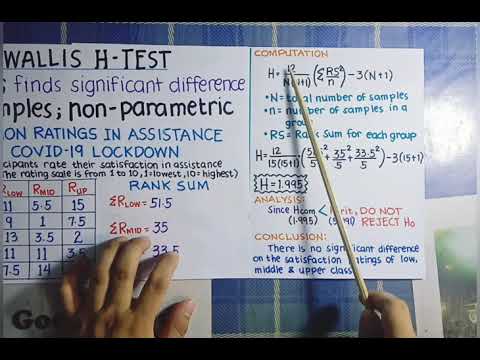 WALLIS H-TEST
finds significant difference
mples; non-parametric
ON RATINGS IN ASSISTANCE
COVID-19 LOCKDOWN
cipants rate their satisfaction in assistance
The rating scale is from 1 to 10, 1=lowest, 10=highest.)
RLOW RMID RUP
11 5.5 15
9 1 7.5
13 3.5 2
11 11 3.5
7.5 14
RANK SUM
ΣRLOW = 51.5
ΣRMID = 35
33.5
COMPUTATION
H = 12/N(N+1) (Σ RS²/n) - 3(N+1)
• N = total number of samples
• n = number of samples in a
group
• RS = Rank Sum for each group
H = 12/15(15+1) (51.5²/5 + 35²/5 + 33.5²/5) - 3(15+1)
H = 1.995
ANALYSIS:
Since Hcom < crit, DO NOT
(1.995) REJECT Ho
CONCLUSION:
There is no significant difference
on the satisfaction ratings of low,
middle & upper class
Go